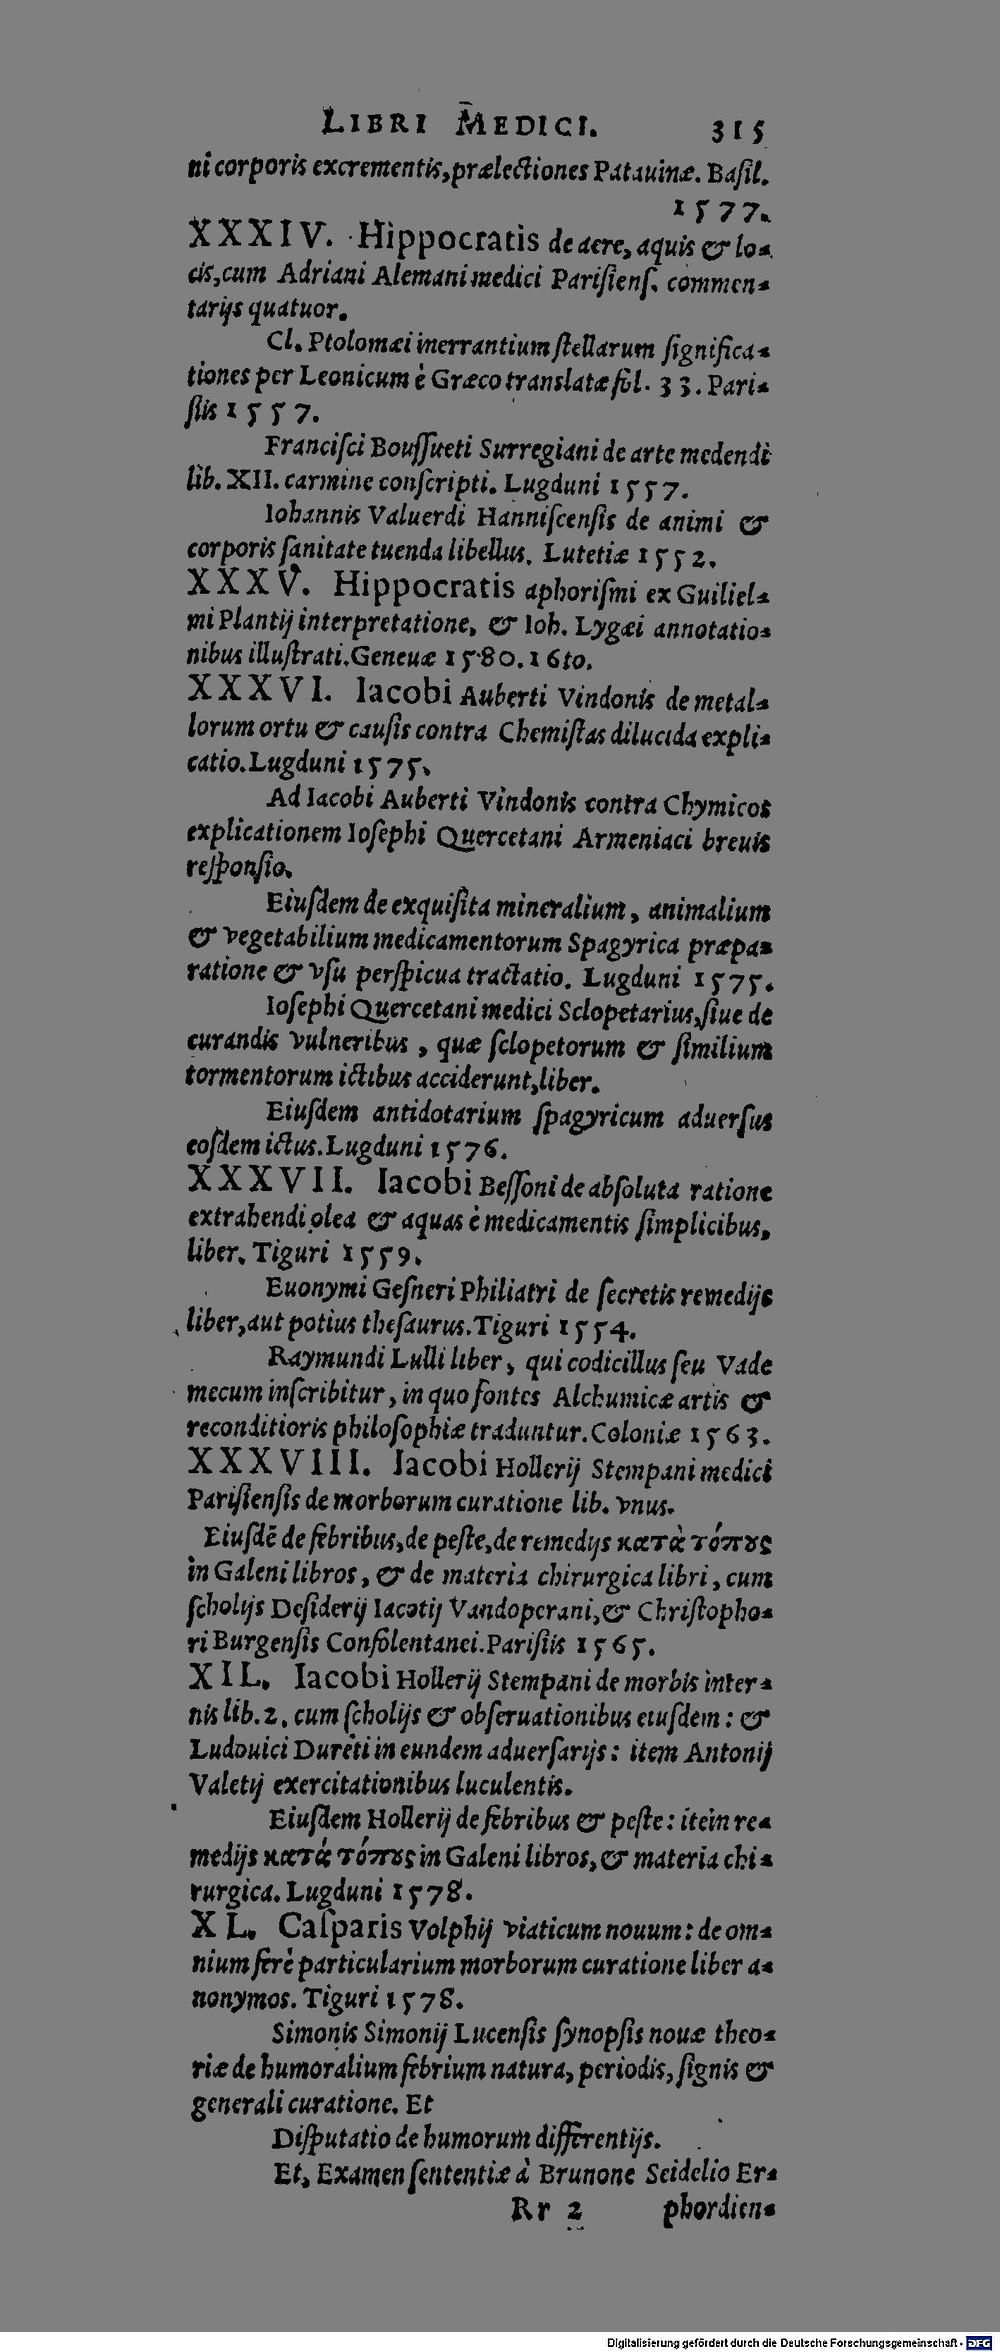 LIBRI MEDICI. 315
ni corporis excrementis, prælectiones Patauinæ. Baſil.
1577.
XXXIV. Hippocratis de aere, aquis & lo-
cis, cum Adriani Alemani medici Pariſienſ. commen-
tarijs quatuor.
Cl. Ptolomæi inerrantium ſtellarum ſignifica-
tiones per Leonicum è Græco translatæ fol. 33. Pari-
ſiis 1557.
Franciſci Bouſſueti Surregiani de arte medendi
lib. XII. carmine conſcripti. Lugduni 1557.
Iohannis Valuerdi Hanniſcenſis de animi &
corporis ſanitate tuenda libellus. Lutetiæ 1552.
XXXV. Hippocratis aphoriſmi ex Guiliel-
mi Plantij interpretatione, & Ioh. Lygæi annotatio-
nibus illuſtrati. Geneuæ 1580. 16to.
XXXVI. Iacobi Auberti Vindonis de metal-
lorum ortu & cauſis contra Chemiſtas dilucida expli-
catio. Lugduni 1575.
Ad Iacobi Auberti Vindonis contra Chymicos
explicationem Ioſephi Quercetani Armeniaci breuis
reſponſio.
Eiuſdem de exquiſita mineralium, animalium
& vegetabilium medicamentorum Spagyrica præpa-
ratione & vſu perſpicua tractatio. Lugduni 1575.
Ioſephi Quercetani medici Sclopetarius, ſiue de
curandis vulneribus, quæ ſclopetorum & ſimilium
tormentorum ictibus acciderunt, liber.
Eiuſdem antidotarium ſpagyricum aduerſus
eoſdem ictus. Lugduni 1576.
XXXVII. Iacobi Beſſoni de abſoluta ratione
extrahendi olea & aquas è medicamentis ſimplicibus,
liber. Tiguri 1559.
Euonymi Geſneri Philiatri de ſecretis remedijs
liber, aut potius theſaurus. Tiguri 1554.
Raymundi Lulli liber, qui codicillus ſeu Vade
mecum inſcribitur, in quo fontes Alchumicæ artis &
reconditioris philoſophiæ traduntur. Coloniæ 1563.
XXXVIII. Iacobi Hollerij Stempani medici
Pariſienſis de morborum curatione lib. vnus.
Eiuſdē de febribus, de peſte, de remedijs κατὰ τόπȣς
in Galeni libros, & de materia chirurgica libri, cum
ſcholijs Deſiderij Iacotij Vandoperani, & Chriſtopho-
ri Burgenſis Conſolentanei. Pariſiis 1565.
XIL. Iacobi Hollerij Stempani de morbis inter-
nis lib. 2. cum ſcholijs & obſeruationibus eiuſdem: &
Ludouici Dureti in eundem aduerſarijs: item Antonij
Valetij exercitationibus luculentis.
Eiuſdem Hollerij de febribus & peſte: item re-
medijs κατά τόπȣς in Galeni libros, & materia chi-
rurgica. Lugduni 1578.
XL. Caſparis Volphij viaticum nouum: de om-
nium ferè particularium morborum curatione liber a-
nonymos. Tiguri 1578.
Simonis Simonij Lucenſis ſynopſis nouæ theo-
riæ de humoralium febrium natura, periodis, ſignis &
generali curatione. Et
Diſputatio de humorum differentijs.
Et, Examen ſententiæ à Brunone Seidelio Er-
Rr 2 phordien-
Digitalisierung gefördert durch die Deutsche Forschungsgemeinschaft - DFG